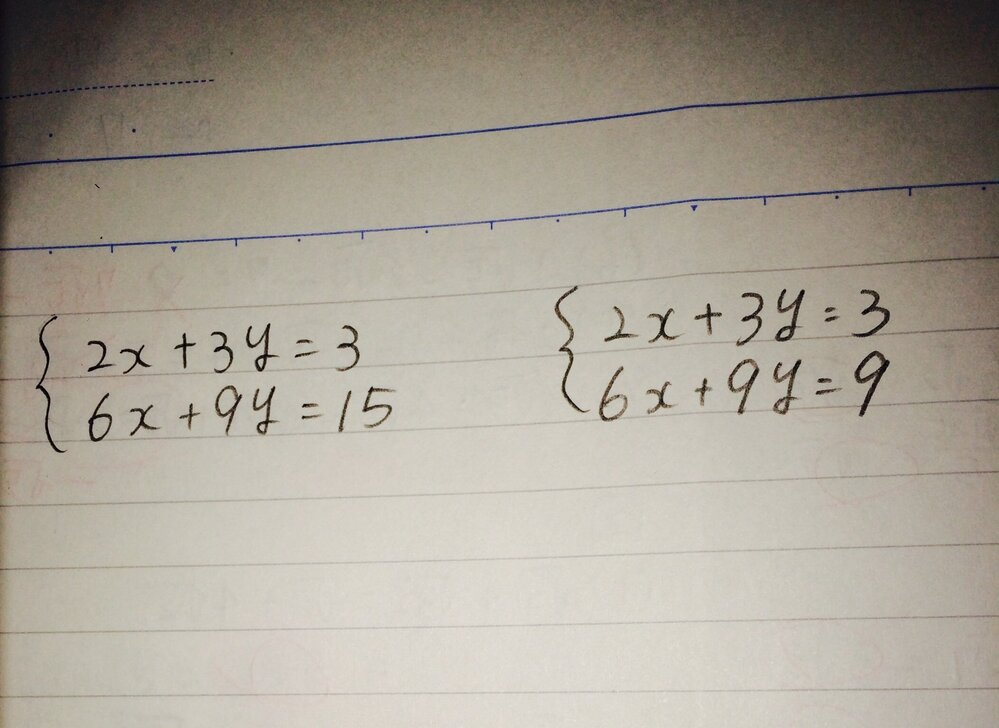 2x+3y=3
6x+9y=15
2x+3y=3
6x+9y=9